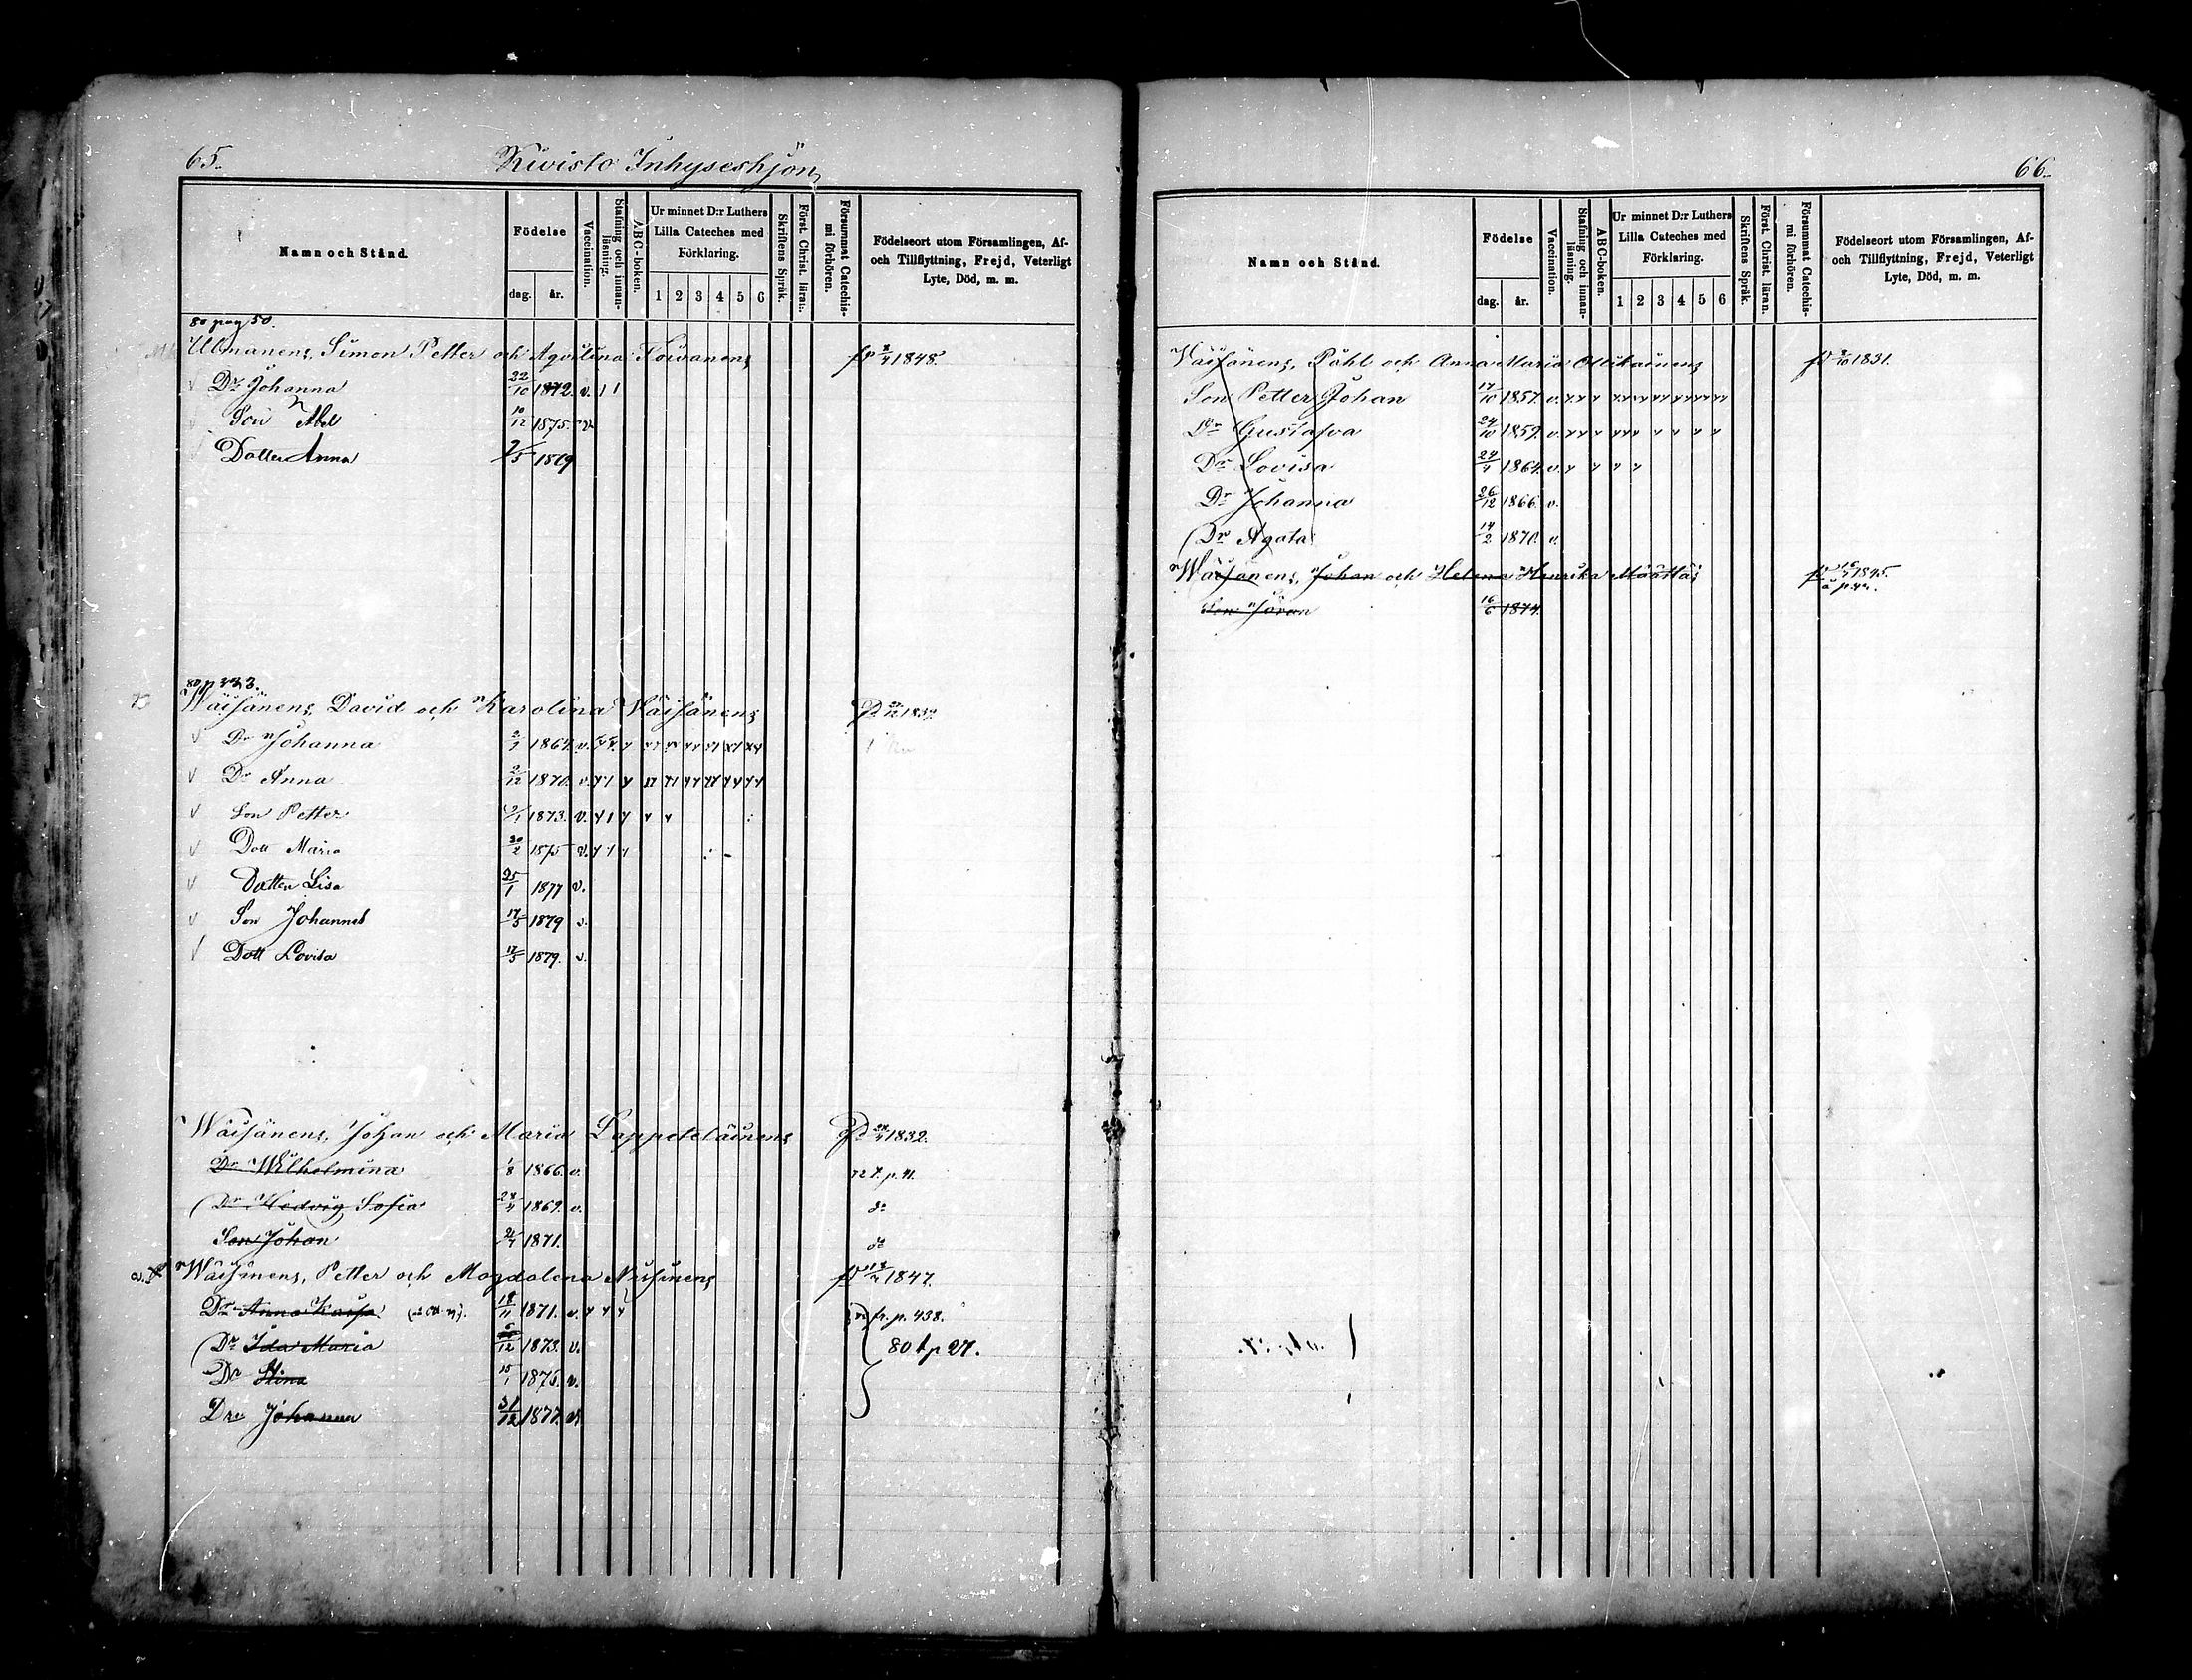 65.
Kivisto Inhyseshjon
Namn och Stånd.
Födelse
dag. år.
Vaccination.
Stafning och innanläsning.
ABC-boken.
Ur minnet D:r Luthers Lilla Cateches med Förklaring.
1 2 3 4 5 6
Skriftens Språk.
Först. Christ. läran.
Försummat Catechismi förhören.
Födelseort utom Församlingen, Af- och Tillflyttning, Frejd, Veterligt Lyte, Död, m. m.
80 pag 50.
Ullmanens, Simon Petter och Agvilina Koivanens 1848.
Dr Johanna 22/10 1872. v.
Son Abel 10/12 1875. v
Dotter Anna 2/5 1879
80 p 333.
Wäisänens, David och Karolina Wäisänens
Dr Johanna 1864. v.
Dr Anna 2/12 1870. v.
Son Petter 1873. v.
Dott Maria 1875 v.
Dotter Lisa 25/1 1877 v.
Son Johannes 17/5 1879 v.
Dott Lovisa 17/5 1879. v.
Wäisänens, Johan och Maria Lappeteläinens 1832.
Dr Wilhelmina 1/8 1866. v.
Dr Hedvig Sofia 1869. v.
Son Johan 1871.
Wäisänens, Petter och Magdalena 1847.
Dr Anna Kaisa 18/11 1871. v. fr. p. 438.
Dr Ida Maria 1873. v. 80 t p 27.
Dr Stina 15/1 1876. v.
Dr Johanna 31/12 1877. v
66.
Namn och Stånd.
Födelse
dag. år.
Vaccination.
Stafning och innanläsning.
ABC-boken.
Ur minnet D:r Luthers Lilla Cateches med Förklaring.
1 2 3 4 5 6
Skriftens Språk.
Först. Christ. läran.
Försummat Catechismi förhören.
Födelseort utom Församlingen, Af- och Tillflyttning, Frejd, Veterligt Lyte, Död, m. m.
Wäisänens, Påhl och Anna Maria Ollikainens 1831.
Son Petter Johan 17/10 1857. v.
Dr Gustafva 24/10 1859. v.
Dr Lovisa 1864. v.
Dr Johanna 26/12 1866. v.
Dr Agata 14/2 1870. v.
Wäisänens, Johan och Helena Henrika Määttäs 1845.
Son Jöran 16/6 1874.